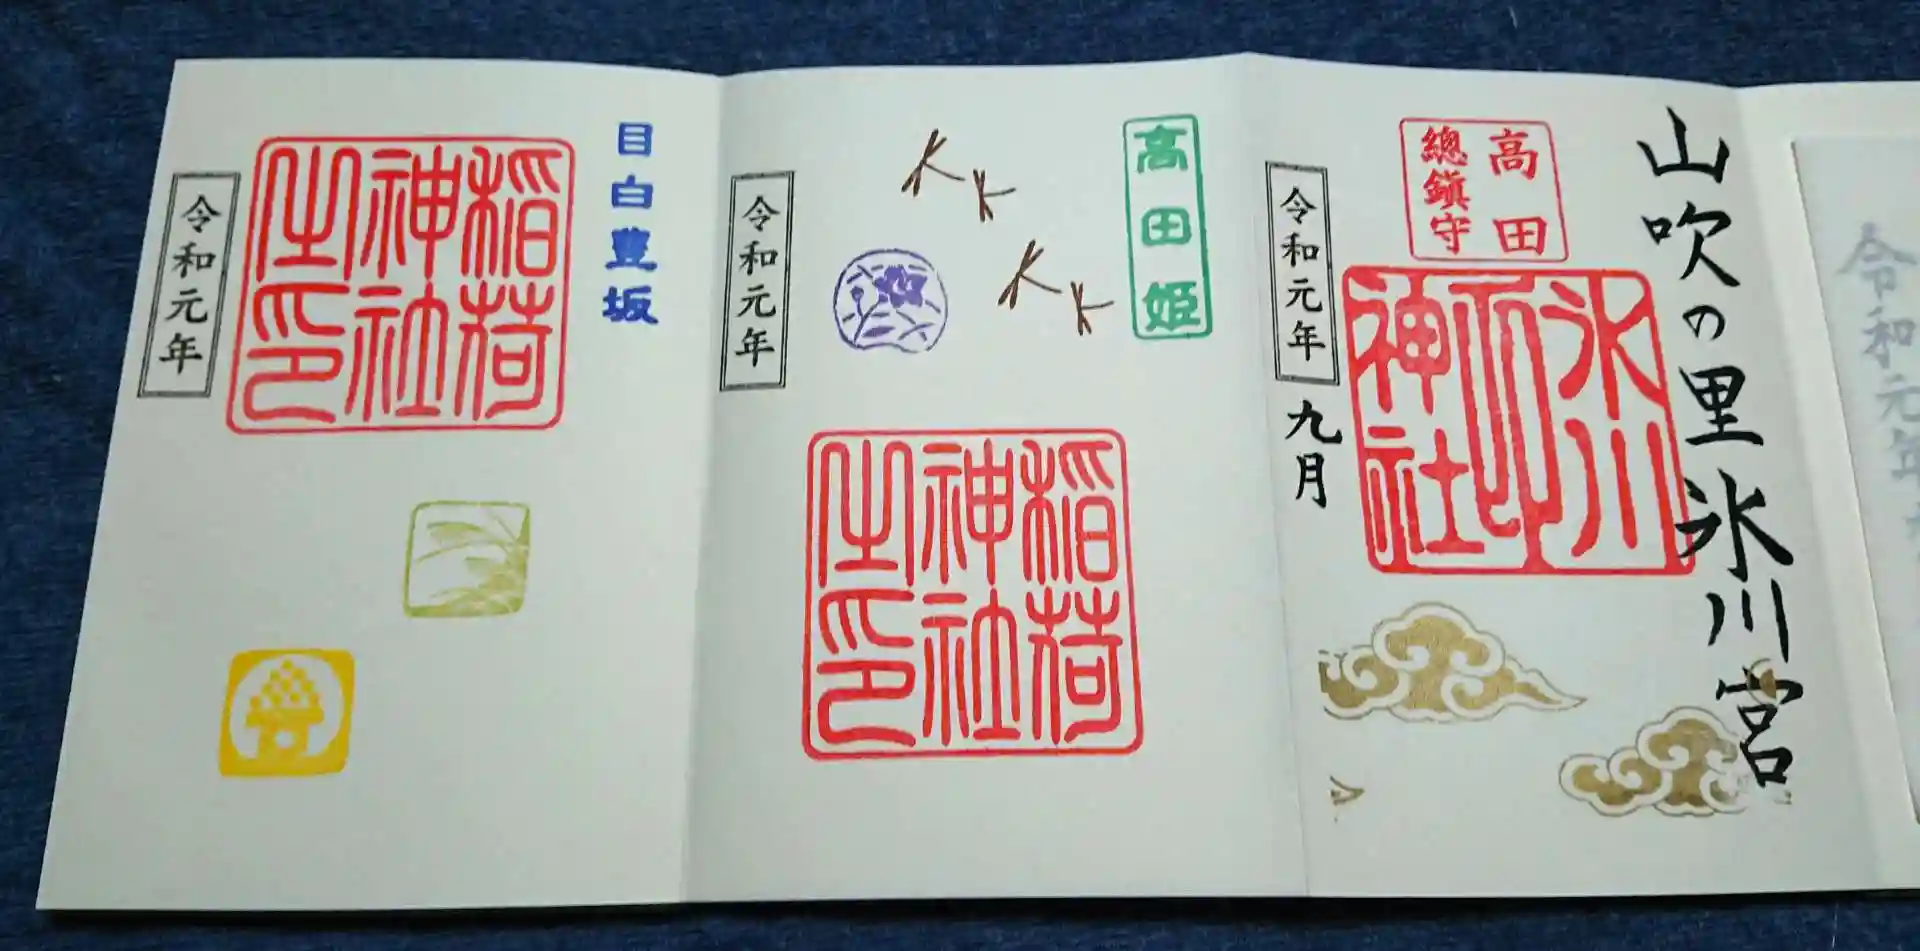 令和元年
山吹の里氷川宮
高田
總鎭守
氷川
印
神社
令和元年
九月
高田姫
稲荷
神社
之印
令和元年
目白豊坂
稲荷
神社
之印
令和元年